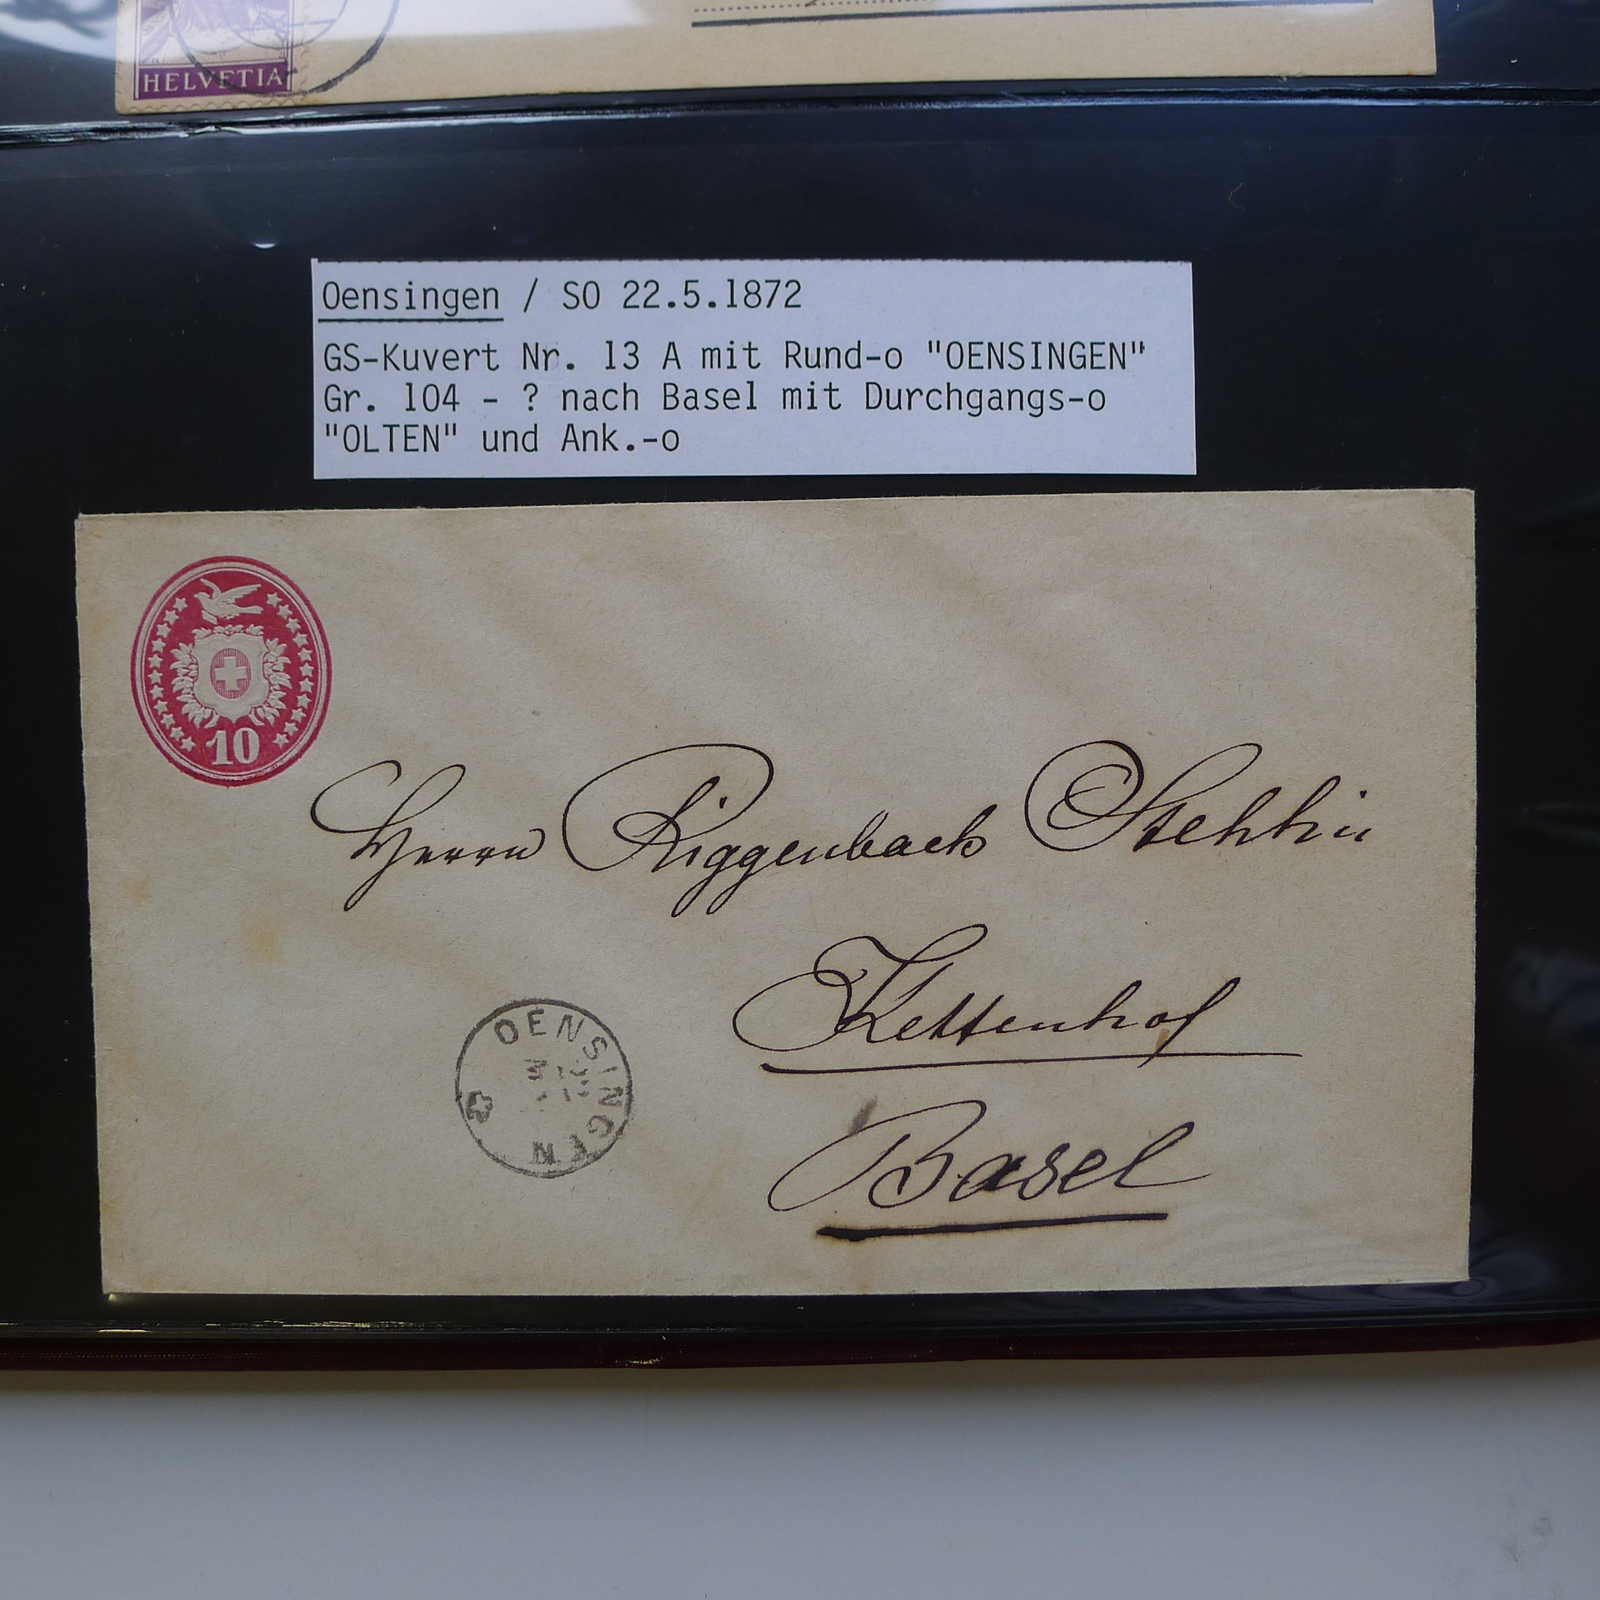 HELVETIA
Oensingen / SO 22.5.1872
GS-Kuvert Nr. 13 A mit Rund-o "OENSINGEN"
Gr. 104 - ? nach Basel mit Durchgangs-o
"OLTEN" und Ank.-o
10
Herrn Riggenbach Stehlin
Kettenhof
Basel
OENSINGEN